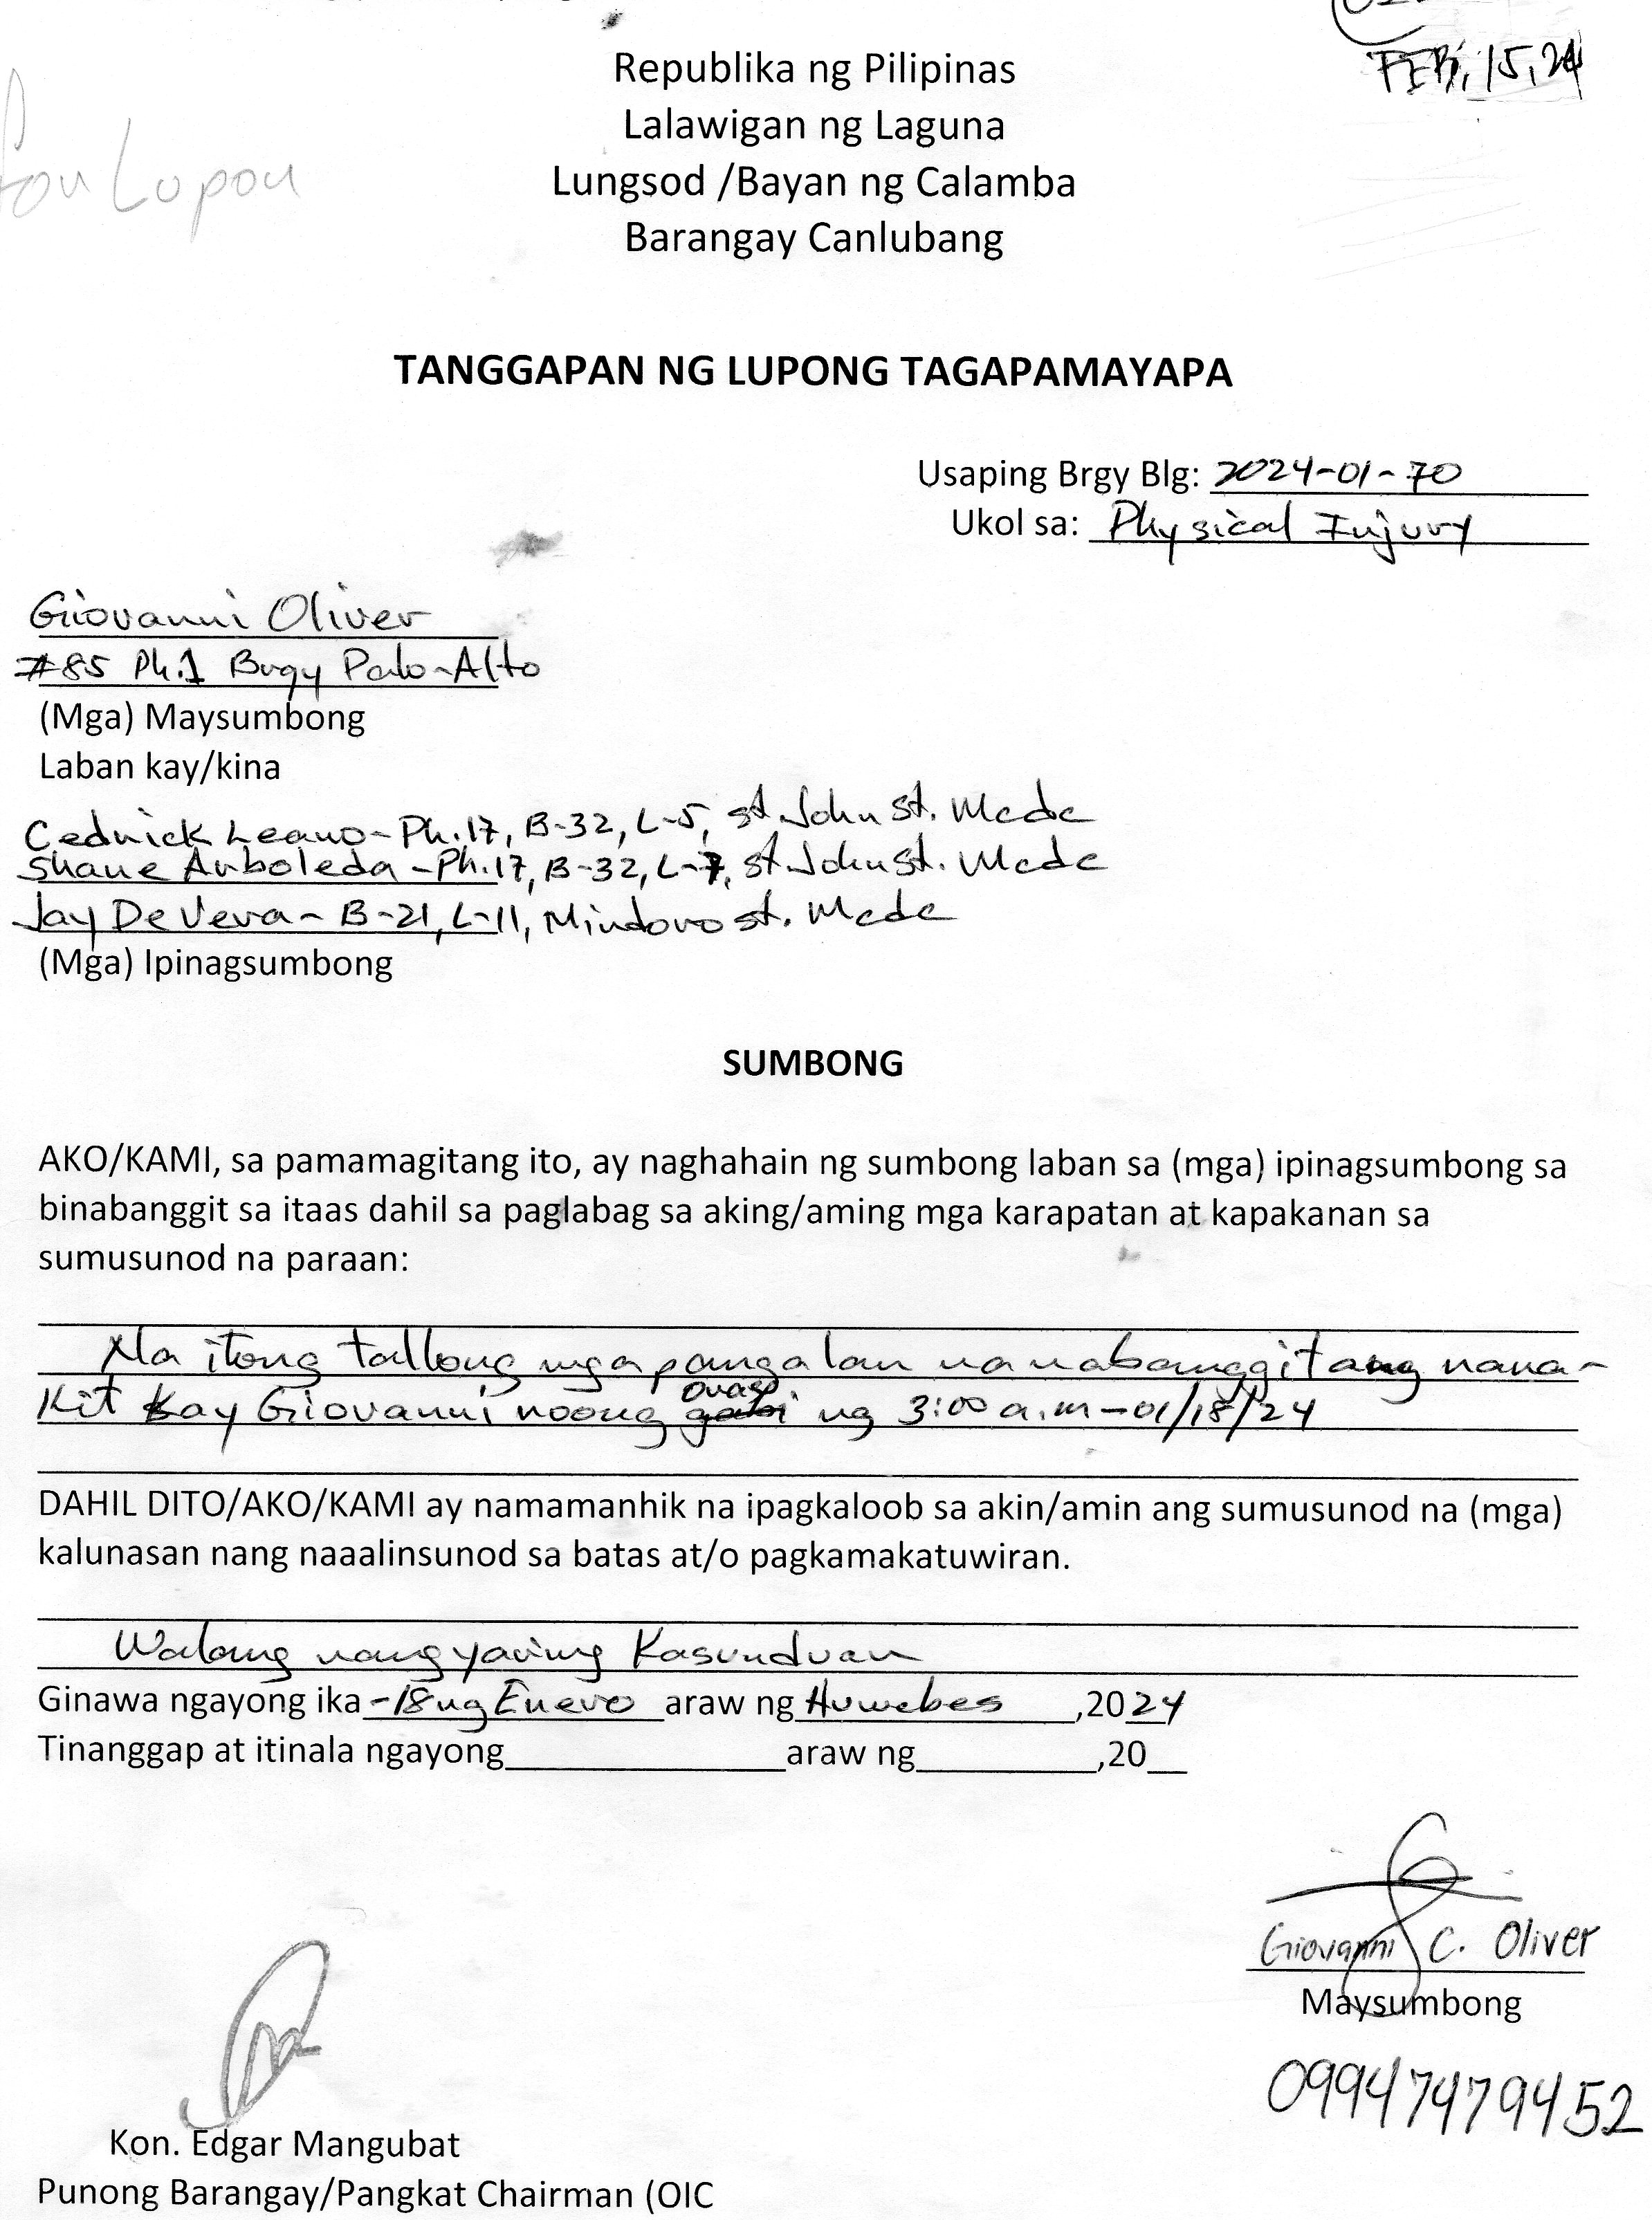 FEB, 15, 24
Lupon
Republika ng Pilipinas
Lalawigan ng Laguna
Lungsod /Bayan ng Calamba
Barangay Canlubang
TANGGAPAN NG LUPONG TAGAPAMAYAPA
Usaping Brgy Blg: 2024-01-70
Ukol sa: Physical Injury
Giovanni Oliver
#85 Ph.1 Brgy Palo-Alto
(Mga) Maysumbong
Laban kay/kina
Cedrick Leano-Ph.17, B-32, L-5, st John st. Mcdc
Shane Arboleda-Ph.17, B-32, L-7, st John st. Mcdc
Jay De Vera- B-21, L-11, Mindoro st. Mcdc
(Mga) Ipinagsumbong
SUMBONG
AKO/KAMI, sa pamamagitang ito, ay naghahain ng sumbong laban sa (mga) ipinagsumbong sa
binabanggit sa itaas dahil sa paglabag sa aking/aming mga karapatan at kapakanan sa
sumusunod na paraan:
Na itong tatlong mga pangalan na nabanggit ang nana-
kit kay Giovanni noong oras ng 3:00 a.m-01/18/24
DAHIL DITO/AKO/KAMI ay namamanhik na ipagkaloob sa akin/amin ang sumusunod na (mga)
kalunasan nang naaalinsunod sa batas at/o pagkamakatuwiran.
Walang nangyaring Kasunduan
Ginawa ngayong ika -18 ng Enero araw ng Huwebes ,2024
Tinanggap at itinala ngayong araw ng ,20
Giovanni C. Oliver
Maysumbong
09947479452
Kon. Edgar Mangubat
Punong Barangay/Pangkat Chairman (OIC